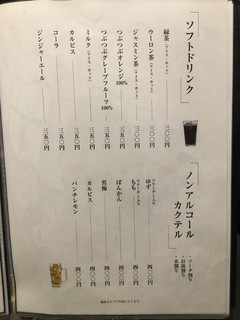 ソフトドリンク
緑茶（アイス・ホット） 三〇〇円
ウーロン茶（アイス・ホット） 三〇〇円
ジャスミン茶（アイス・ホット） 三〇〇円
つぶつぶオレンジ100% 三五〇円
つぶつぶグレープフルーツ100% 三五〇円
ミルク（アイス・ホット） 三五〇円
カルピス 三五〇円
コーラ 三五〇円
ジンジャーエール 三五〇円
ノンアルコールカクテル
・ソーダ割り
・お湯割り
・水割り
ゆず 四〇〇円
もも 四〇〇円
ぽんかん 四〇〇円
男梅 四〇〇円
カルピス 四〇〇円
パンチレモン 四〇〇円